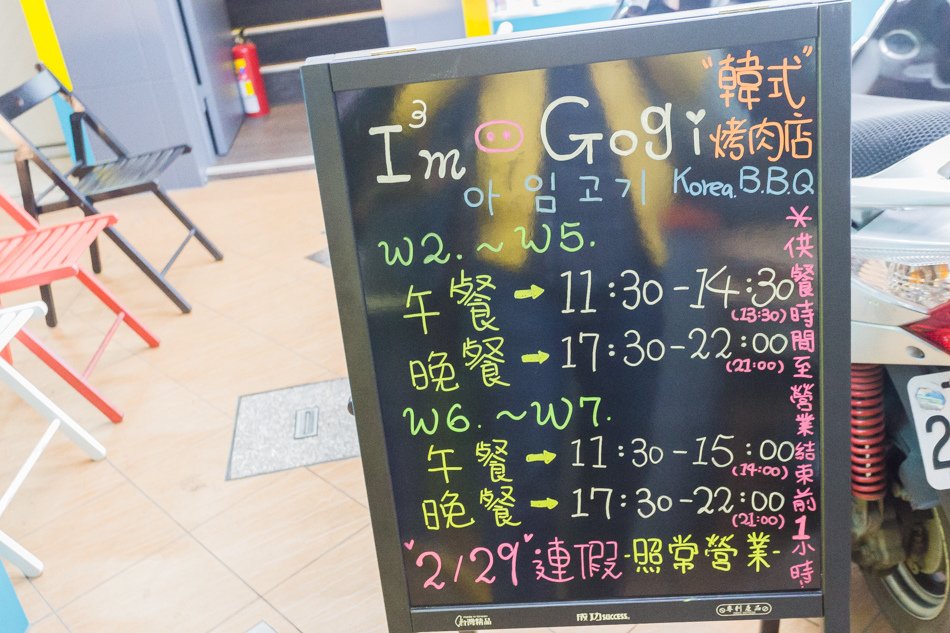 I³m Gogi
"韓式"
烤肉店
아임고기 Korea. B.B.Q
W2. ~ W5.
午餐 → 11:30 - 14:30
(13:30)
晚餐 → 17:30 - 22:00
(21:00)
W6. ~ W7.
午餐 → 11:30 - 15:00
(14:00)
晚餐 → 17:30 - 22:00
(21:00)
2/29 連假 - 照常營業 -
*供餐時間至營業結束前1小時
台灣精品
成功 success.
專利產品
2